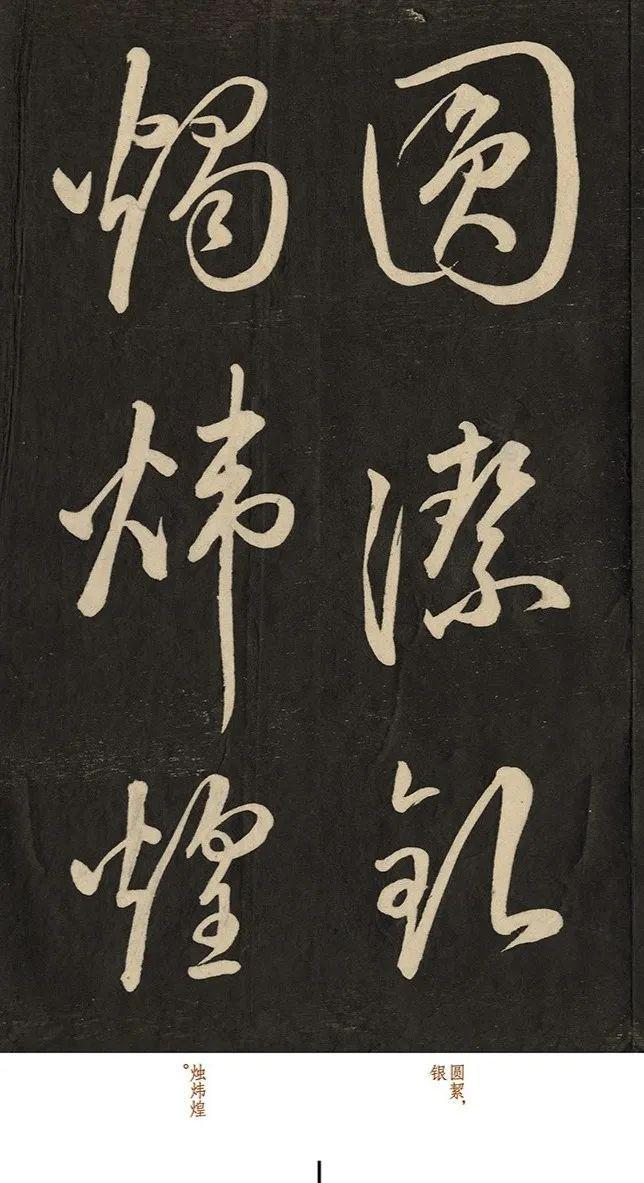 圓潔銀
燭煒煌
圆絜，
银
烛炜煌。